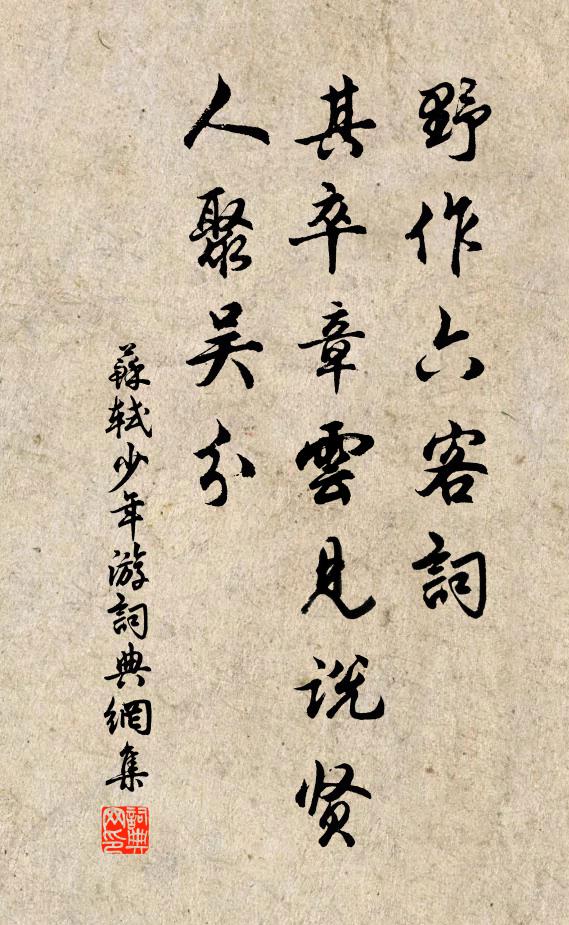 野作六客詞
其卒章雲見说贤
人聚吴分
蘇轼少年游詞典網集
詞典
网印